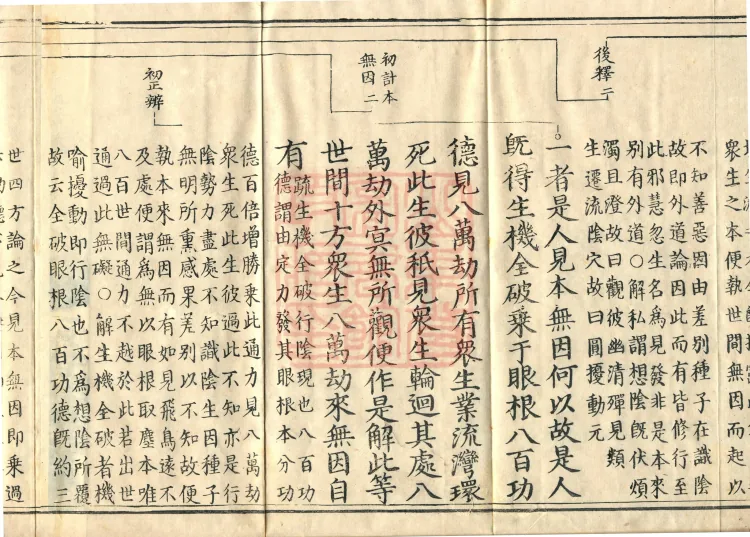 後釋二
不知善惡因由差別種子在識陰
故即外道論因此而有皆修行至
此邪慧忽生名為見發非是本來
別有外道○解私謂想陰既伏煩
濁且澄故曰觀彼幽清殫見類
生遷流陰穴故曰圓擾動元
一者是人見本無因何以故是人
旣得生機全破乘于眼根八百功
初計本
無因二
德見八萬劫所有衆生業流灣環
死此生彼秖見衆生輪迴其處八
萬劫外㝠無所觀便作是解此等
世間十方衆生八萬劫來無因自
有
疏生機全破行陰現也八百功
德謂由定力發其眼根本分功
初正辨
德百倍增勝乘此通力見八萬劫
衆生死此生彼過此不知亦是行
陰勢力盡處不知識陰生因種子
無明所熏感果差別以不知故便
執本來無因而有如見飛鳥遠不
及處便謂爲無以眼根取塵本唯
八百世間通力不越於此若出世
通過此無礙○解生機全破者機
喻擾動即行陰也不爲想陰所覆
故云全破眼根八百功德旣約三
世四方論之今見本無因即乗過